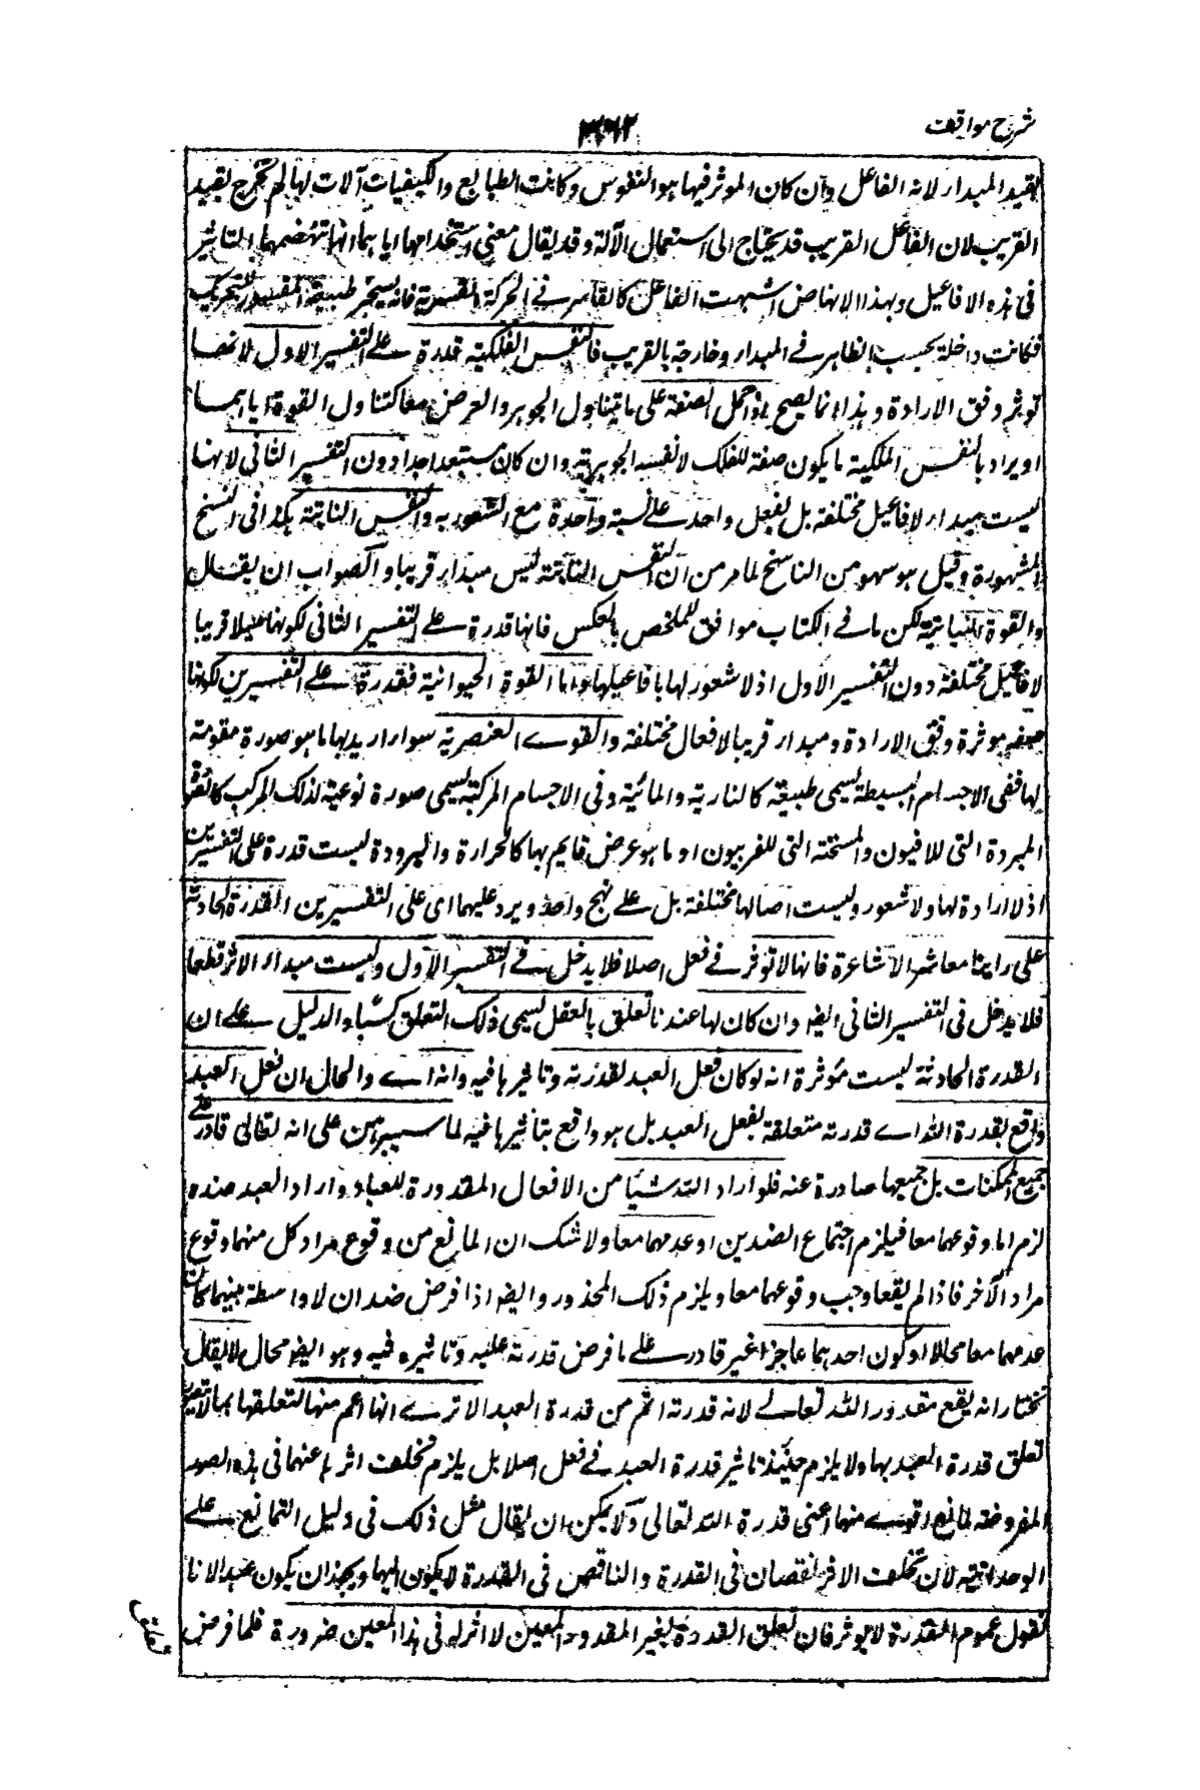 شرح مواقف
٣٦٢
بقيد المبدأ لانه الفاعل وان كان الموثر فيها هو النفوس وكانت الطبايع والكيفيات آلات لها لم تخرج بقيد
القريب لان الفاعل القريب قد يحتاج الى استعمال الآلة وقد يقال معنى استخدامها اياهما انها تنهضهما للتاثير
فى هذه الافاعيل وبهذا الانهاض اشبهت الفاعل كالقاسر فے الحركة القسرية فانه يسخر طبيعة المقسور للتحريك
فكانت داخلة بحسب الظاهر فے المبدأ وخارجة بالقريب فالنفس الفلكية قدرة علے التفسير الاول لانها
توثر وفق الارادة وهذا انما يصح اذا حمل الصفة على ما يتناول الجوهر والعرض معا كتناول القوة اياهما
او يراد بالنفس الفلكية ما يكون صفة للفلك لا نفسه الجوهرية وان كان مستبعدا جدا دون التفسير الثانى لانها
ليست مبدأ لافاعيل مختلفة بل لفعل واحد علے نسبة واحدة مع الشعور به والنفس النباتية هكذا فى النسخ
المشهورة وقيل هو سهو من الناسخ لما مر من ان النفس النباتية ليس مبدأ قريبا والصواب ان يقال
والقوة النباتية لكن ما فے الكتاب موافق للملخص بالعكس فانها قدرة علے التفسير الثانى لكونها مبدأ قريبا
لافاعيل مختلفة دون التفسير الاول اذ لا شعور لها بافاعيلها واما القوة الحيوانية فقدرة علے التفسيرين لكونها
صفة موثرة وفق الارادة ومبدأ قريبا لافعال مختلفة والقوے العنصرية سواء اريد بها ما هو صورة مقومة
لها ففى الاجسام البسيطة تسمى طبيعة كالنارية والمائية وفى الاجسام المركبة تسمى صورة نوعية لذلك المركب كالقوة
المبردة التى للافيون والمسخنة التى للفربيون او ما هو عرض قايم بها كالحرارة والبرودة ليست قدرة على التفسيرين
اذ لا ارادة لها ولا شعور وليست افعالها مختلفة بل علے نهج واحد ويرد عليهما اى على التفسيرين القدرة الحادثة
على راينا معاشر الاشاعرة فانها لا توثر فے فعل اصلا فلا يدخل فے التفسير الاول وليست مبدأ لاثر قطعا
فلا يدخل فى التفسير الثانى ايضا وان كان لها عندنا تعلق بالفعل يسمى ذلك التعلق كسبا والدليل علے ان
القدرة الحادثة ليست موثرة انه لو كان فعل العبد بقدرته وتاثيرها فيه وانه اے والحال ان فعل العبد
واقع بقدرة الله اے قدرته متعلقة بفعل العبد بل هو واقع بتاثيرها فيه لما سيبرهن على انه تعالى قادر علے
جميع الممكنات بل جميعها صادرة عنه فلو اراد الله شيئا من الافعال المقدورة للعباد واراد العبد ضده
لزم اما وقوعهما معا فيلزم اجتماع الضدين او عدمهما معا ولا شك ان المانع من وقوع مراد كل منهما وقوع
مراد الآخر فاذا لم يقعا وجب وقوعهما معا ويلزم ذلك المحذور وايضا اذا فرض ضدان لا واسطة بينهما كان
عدمهما معا محالا او كون احدهما عاجزا غير قادر علے ما فرض قدرته عليه وتاثيره فيه وهو ايضا محال لا يقال
نختار انه يقع مقدور الله تعالے لانه قدرته اتم من قدرة العبد الا ترے انها اعم منها لتعلقها بما لا
تعلق قدرة العبد بها ولا يلزم حينئذ تاثير قدرة العبد فے فعل اصلا بل يلزم تخلف اثرها عنها فى هذه الصورة
المفروضة لمانع اقوے منها اعنى قدرة الله تعالى ولا يمكن ان يقال مثل ذلك فى دليل التمانع علے
الوحدانية لان تخلف الاثر نقصان فى القدرة والناقص فى القدرة لا يكون الها ويجوز ان يكون عبدا لانا
نقول عموم القدرة لا يوثر فان تعلق القدرة بغير المقدور المعين لا اثر له فى هذا المعين ضرورة فلما فرض